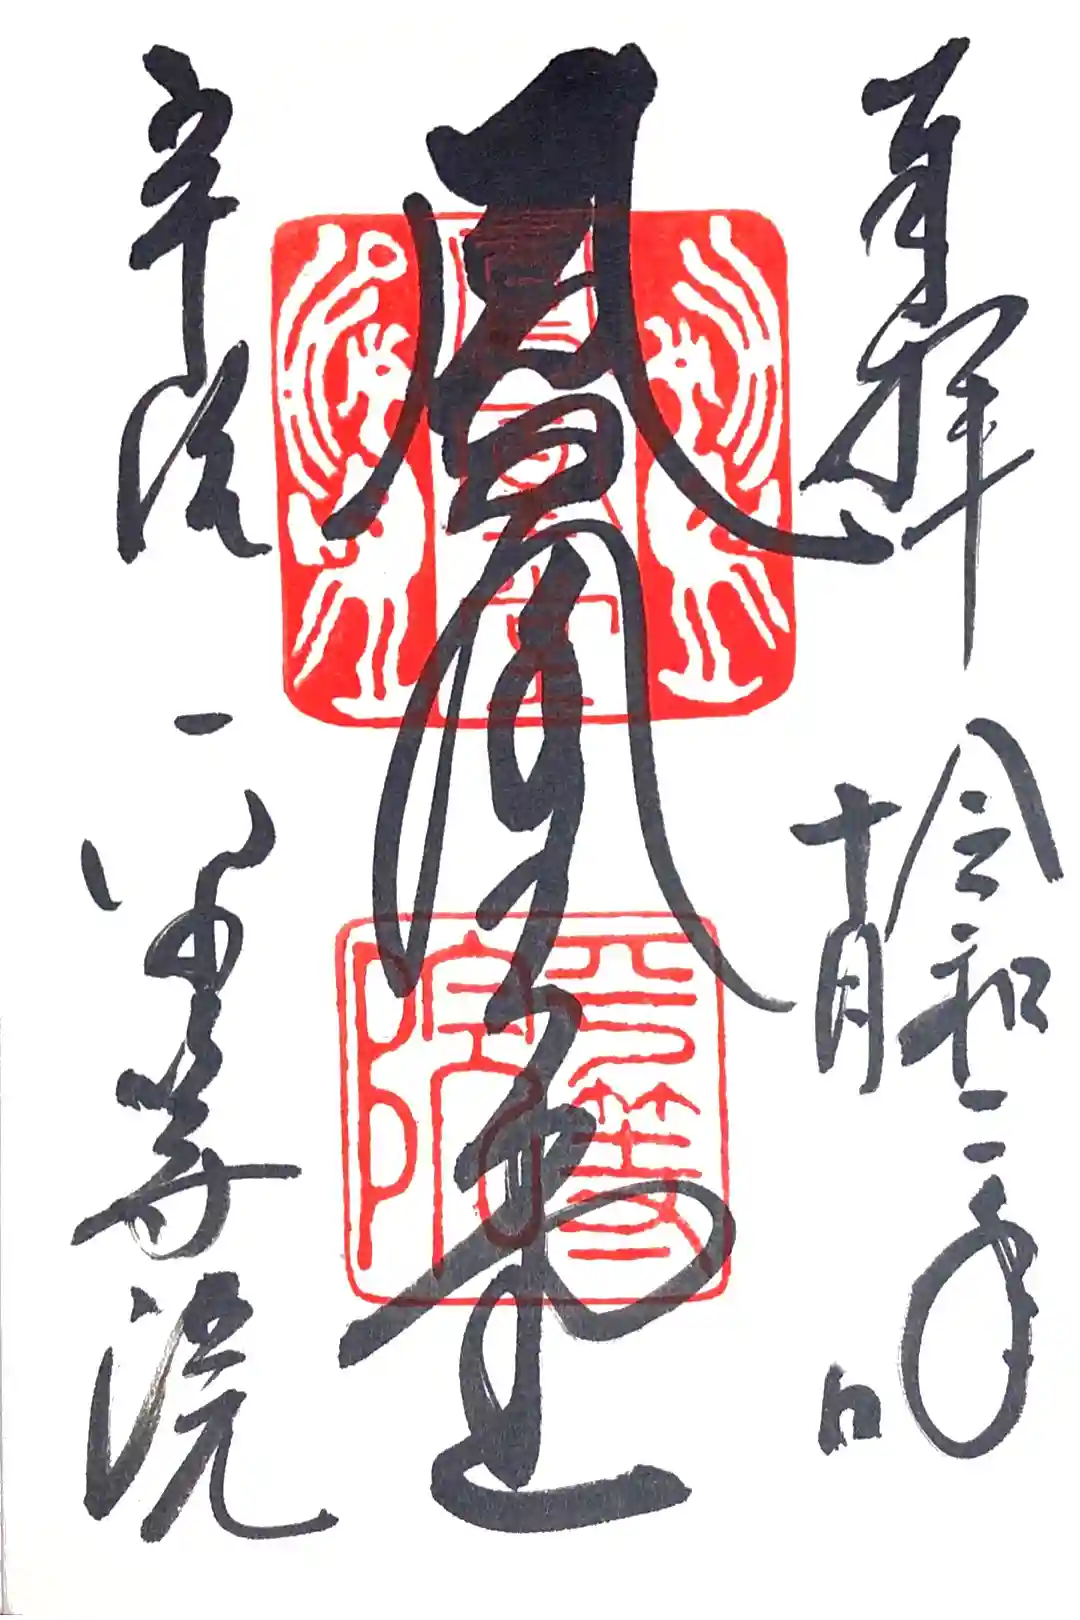 奉拝
令和二年
十月 日
鳳凰堂
宇治
平等院
平等院